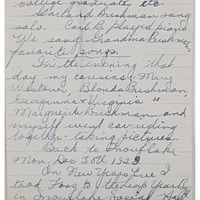 college graduates etc
Garland Bushman sang
solo. Carl B played piano
We sang Grandma Bushman's
favorite songs.
In the evening that
day my cousins: Mary
Westover, Blonda Bushman,
Georganna & Virginia "
Marguerite Bushman and
myself went car riding
together - taking pictures.
Back to Snowflake
Mon, Dec 30th 1929
On New Years Eve I
took to
in Snowflake Social Hall